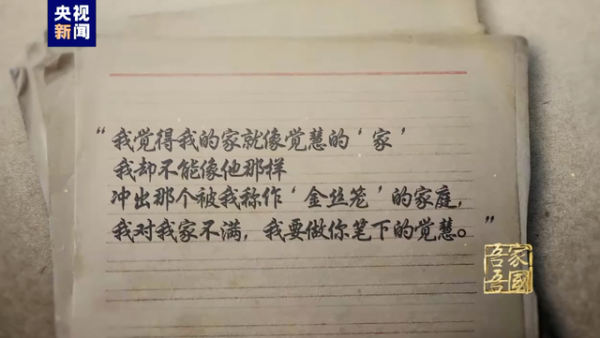 央视
新闻
“我觉得我的家就像觉慧的‘家’
我却不能像他那样
冲出那个被我称作‘金丝笼’的家庭，
我对我家不满，我要做你笔下的觉慧。”
吾家
吾國